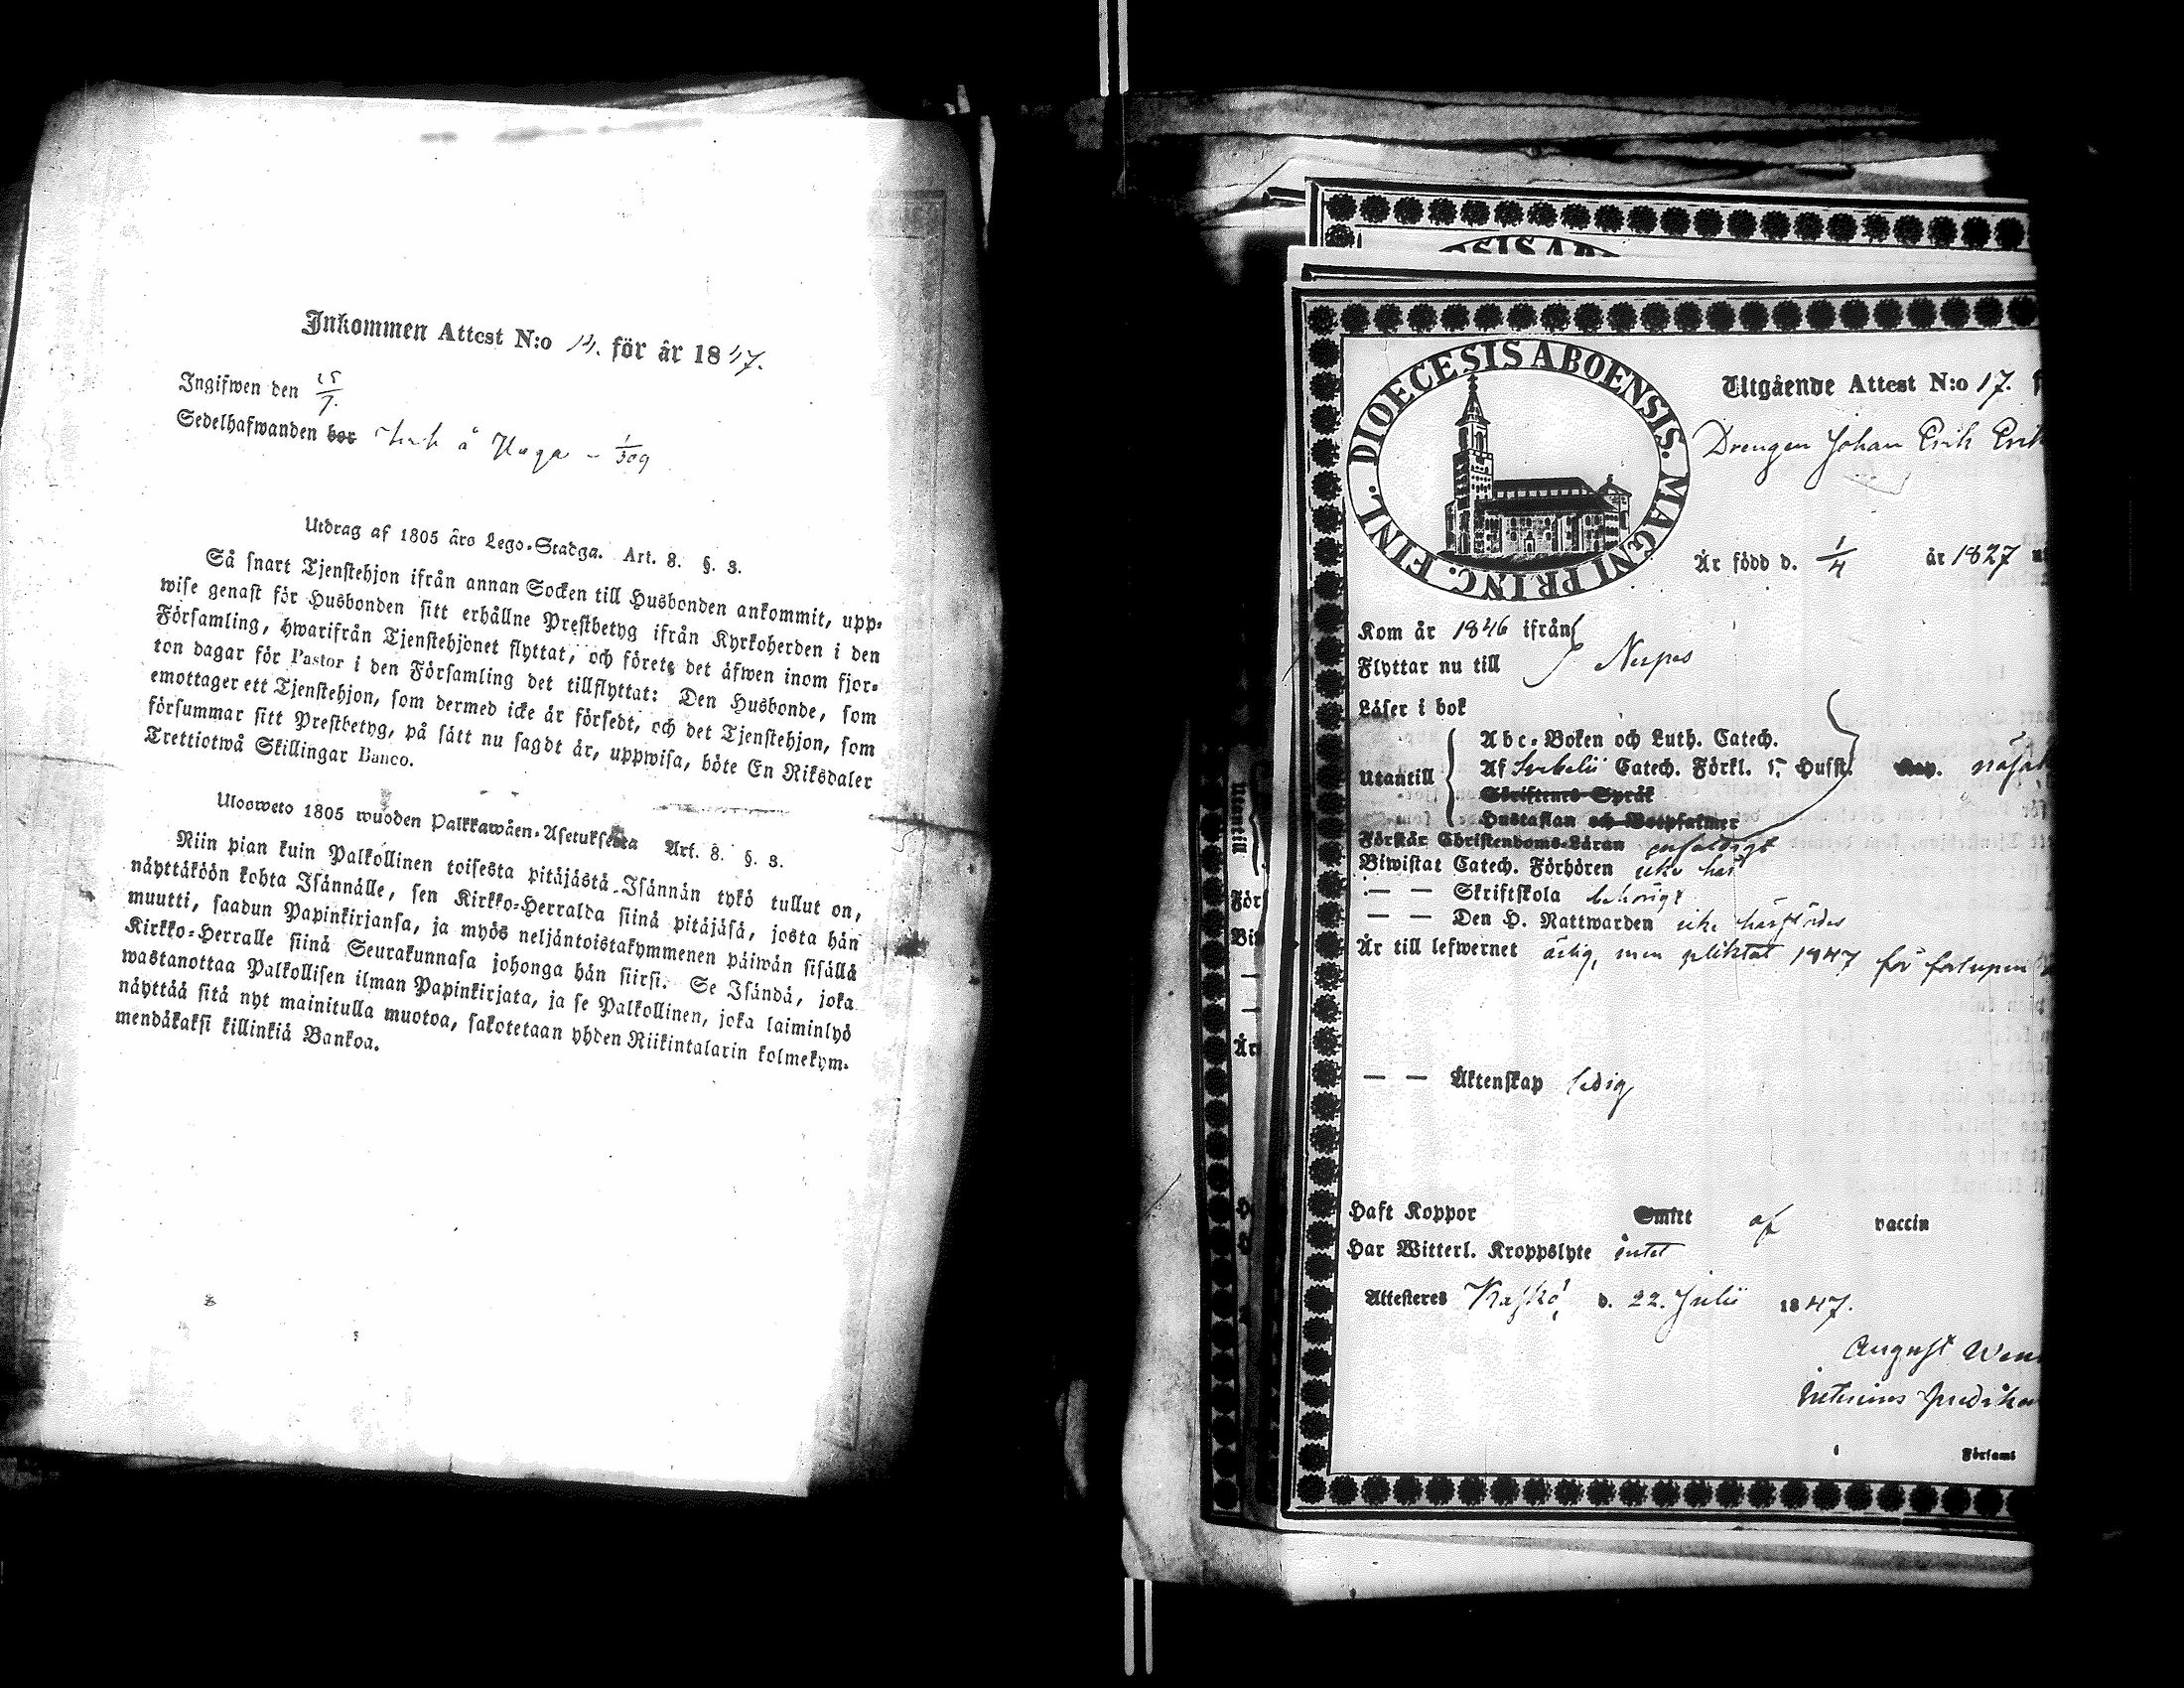 Inkommen Attest N:o 14. för år 1847.
Ingifwen den 25/7.
Sedelhafwanden bor å Haga - 1/309
Utdrag af 1805 års Lego-Stadga. Art. 8. §. 3.
Så snart Tjenstehjon ifrån annan Socken till Husbonden ankommit, upp-
wise genast för Husbonden sitt erhållne Prestbetyg ifrån Kyrkoherden i den
Församling, hwarifrån Tjenstehjonet flyttat, och förete det äfwen inom fjor-
ton dagar för Pastor i den Församling det tillflyttat: Den Husbonde, som
emottager ett Tjenstehjon, som dermed icke är försedt, och det Tjenstehjon, som
försummar sitt Prestbetyg, på sätt nu sagdt är, uppwisa, böte En Riksdaler
Trettiotwå Skillingar Banco.
Ulosweto 1805 wuoden Palkkawäen-Asetuksesta Art. 8. §. 3.
Niin pian kuin Palkollinen toisesta pitäjästä Isännän tykö tullut on,
näyttäköön kohta Isännälle, sen Kirkko-Herralda siinä pitäjäsä, josta hän
muutti, saadun Papinkirjansa, ja myös neljäntoistakymmenen päiwän sisällä
Kirkko-Herralle siinä Seurakunnasa johonga hän siirsi. Se Isändä, joka
wastanottaa Palkollisen ilman Papinkirjata, ja se Palkollinen, joka laiminlyö
näyttää sitä nyt mainitulla muotoa, sakotetaan yhden Riikintalarin kolmekym-
mendäkaksi killinkiä Bankoa.
DIOECESIS ABOENSIS. MAGNI PRINC. FINL.
Utgående Attest N:o 17.
Drengen Johan Erik Erik
Är född d. 1/4 år 1827
Kom år 1846 ifrån
Flyttar nu till Nerpes
Läser i bok
Utantill
Abc-Boken och Luth. Catech.
Af Svebelii Catech. Förkl. 5. Hufst.
Skriftenes Språk
Hustaflan och Botpsalmer
Förstår Christendoms-Läran enfaldigt
Biwistat Catech. Förhören icke här
— — Skriftskola behörigt
— — Den H. Nattwarden icke härstädes
Är till lefwernet ärlig, men pliktat 1847 för förlupen
— — Äktenskap ledig
Haft Koppor Smitt af vaccin
Har Witterl. Kroppslyte intet
Attesteres Kaskö, d. 22. Julii 1847.
August
Församl